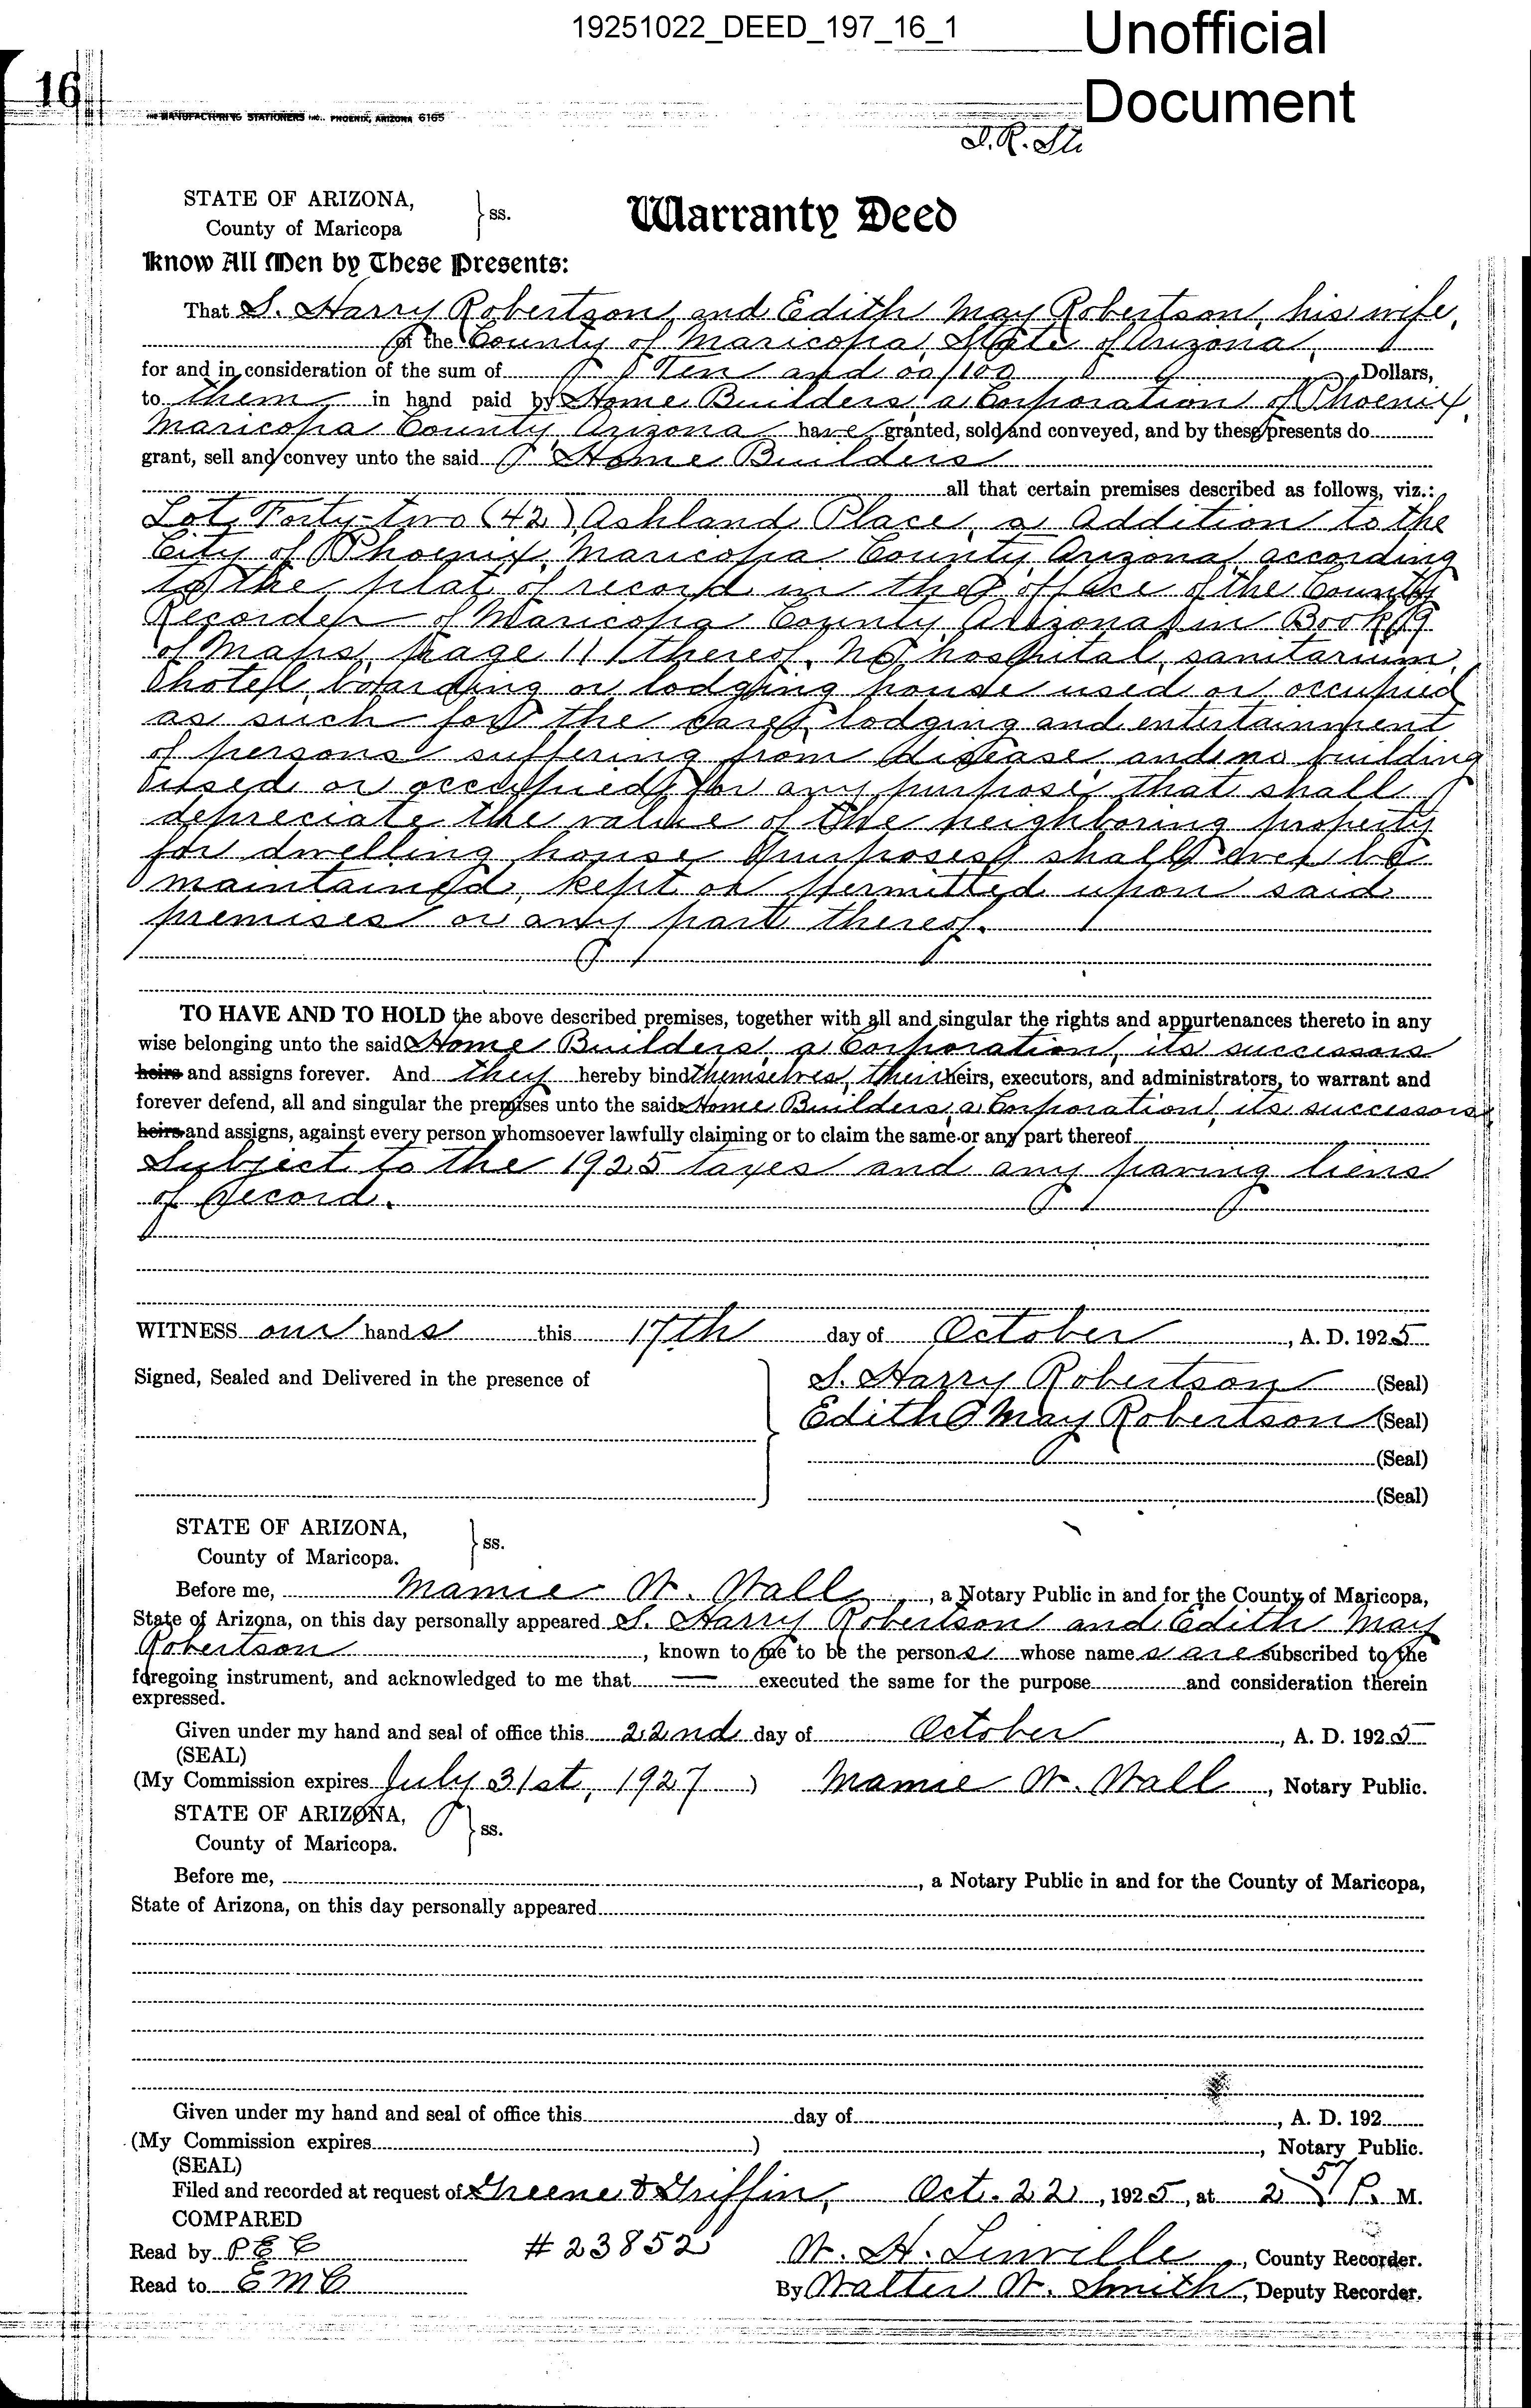 19251022_DEED_197_16_1
Unofficial
Document
16
THE MANUFACTURING STATIONERS INC., PHOENIX, ARIZONA 6165
STATE OF ARIZONA, } ss.
County of Maricopa
Warranty Deed
Know All Men by These Presents:
That S. Harry Robertson, and Edith May Robertson, his wife,
of the County of Maricopa, State of Arizona,
for and in consideration of the sum of Ten and 00/100 Dollars,
to them in hand paid by Home Builders, a Corporation of Phoenix,
Maricopa County, Arizona have granted, sold and conveyed, and by these presents do
grant, sell and convey unto the said Home Builders
all that certain premises described as follows, viz.:
Lot Forty-two (42) Ashland Place, a Addition to the
City of Phoenix, Maricopa County, Arizona, according
to the plat of record in the office of the County
Recorder of Maricopa County, Arizona, in Book 9
of Maps, page 11 thereof. No hospital, sanitarium,
hotel, boarding or lodging house used or occupied
as such for the care, lodging and entertainment
of persons suffering from disease, and no building
used or occupied for any purpose, that shall
depreciate the value of the neighboring property
for dwelling house purposes, shall ever be
maintained, kept or permitted upon said
premises or any part thereof.
TO HAVE AND TO HOLD the above described premises, together with all and singular the rights and appurtenances thereto in any
wise belonging unto the said Home Builders, a Corporation, its successors
heirs and assigns forever. And they hereby bind themselves, their heirs, executors, and administrators, to warrant and
forever defend, all and singular the premises unto the said Home Builders, a Corporation, its successors
heirs and assigns, against every person whomsoever lawfully claiming or to claim the same or any part thereof
Subject to the 1925 taxes and any paving liens
of Record.
WITNESS our hands this 17th day of October, A. D. 1925
Signed, Sealed and Delivered in the presence of
S. Harry Robertson (Seal)
Edith May Robertson (Seal)
(Seal)
(Seal)
STATE OF ARIZONA, } ss.
County of Maricopa.
Before me, Mamie W. Wall, a Notary Public in and for the County of Maricopa,
State of Arizona, on this day personally appeared S. Harry Robertson and Edith May
Robertson, known to me to be the persons whose names are subscribed to the
foregoing instrument, and acknowledged to me that — executed the same for the purpose and consideration therein
expressed.
Given under my hand and seal of office this 22nd day of October, A. D. 1925
(SEAL)
(My Commission expires July 31st, 1927) Mamie W. Wall, Notary Public.
STATE OF ARIZONA, } ss.
County of Maricopa.
Before me, , a Notary Public in and for the County of Maricopa,
State of Arizona, on this day personally appeared
Given under my hand and seal of office this day of , A. D. 192
(My Commission expires ) , Notary Public.
(SEAL)
Filed and recorded at request of Greene & Griffin, Oct. 22, 1925, at 2 57 P. M.
COMPARED
Read by P E C # 23852 W. H. Linville, County Recorder.
Read to E M C By Walter W. Smith, Deputy Recorder.